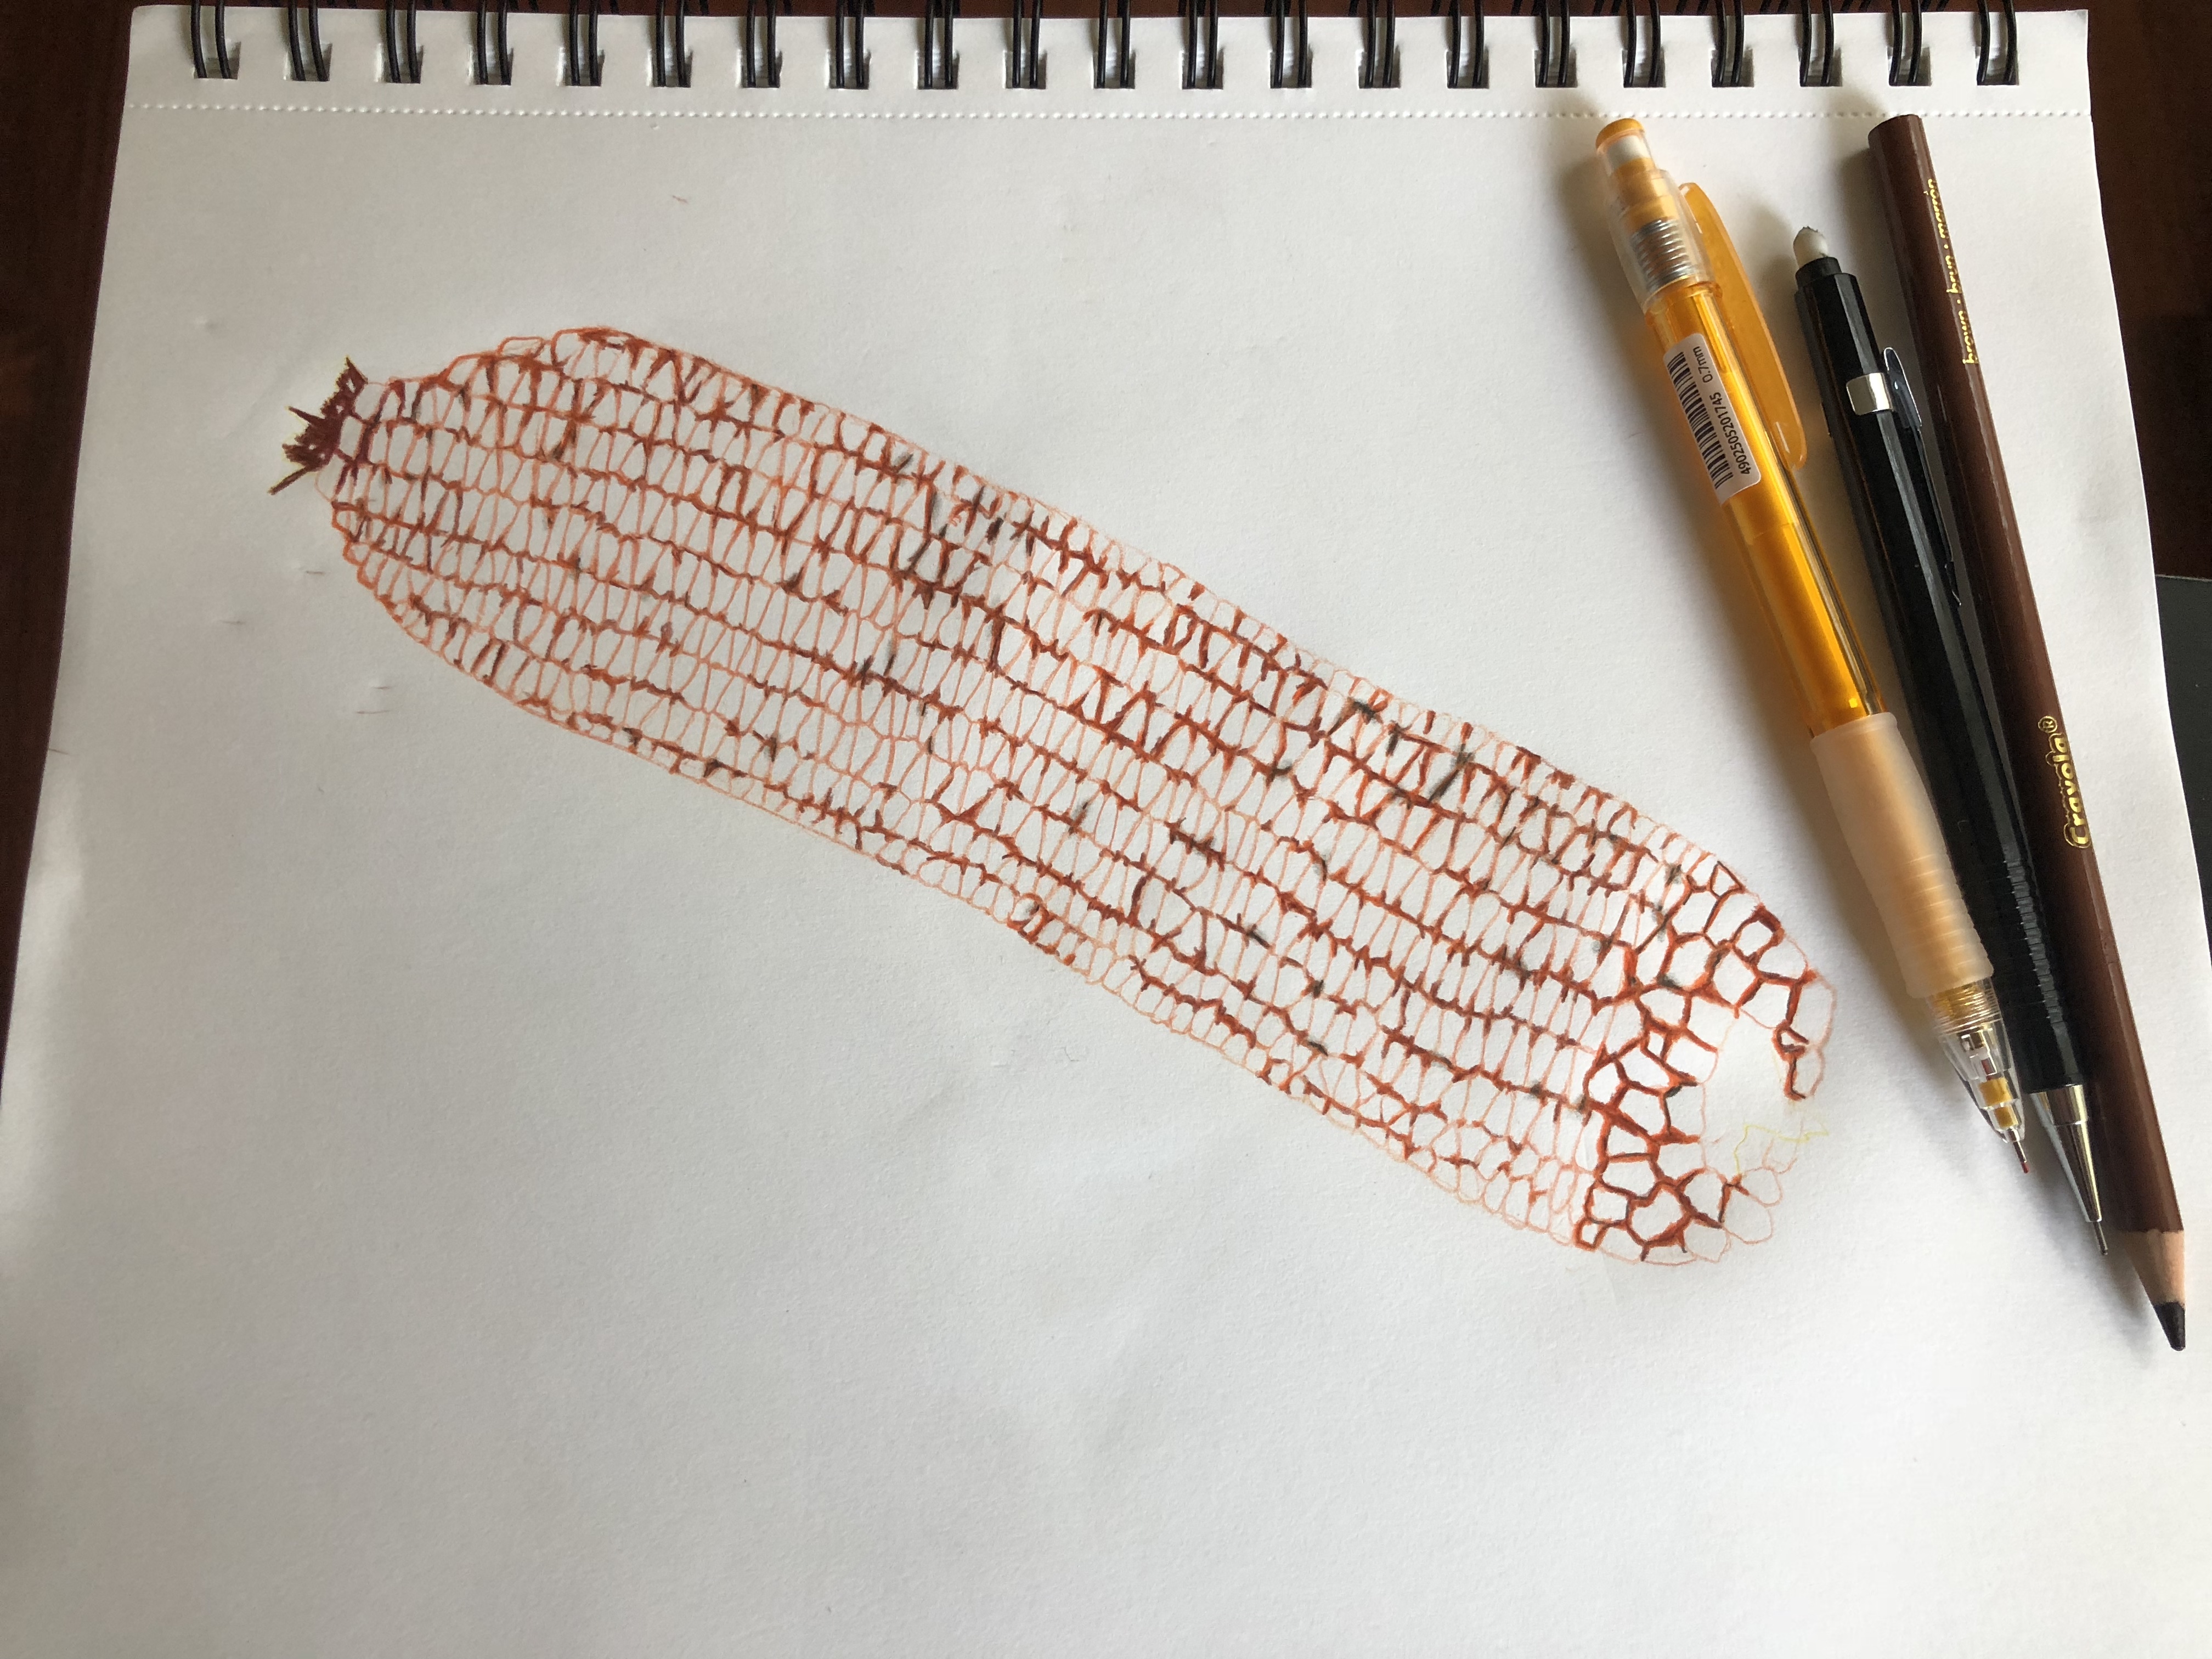 0.7mm
4902505201745
brown · brun · marrón
Crayola®